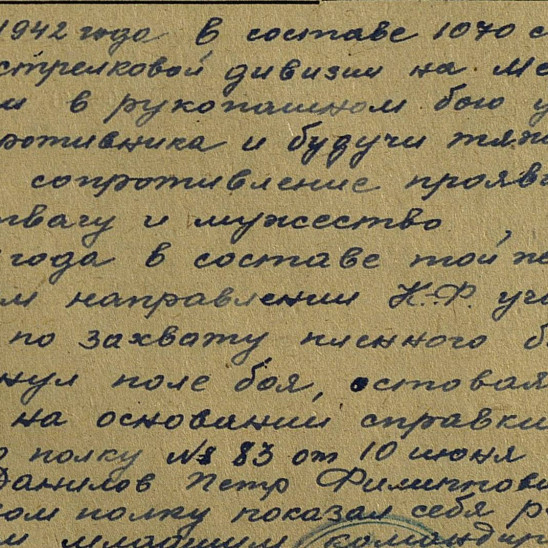 1942 года в составе 1070 с
стрелковой дивизии на Ме
и в рукопашном бою у
ротивника и будучи тяж
сопротивление прояв
твагу и мужество
года в составе той же
ом направлении К-Ф. уча
по захвату пленного б
нул поле боя, оставая
на основании справки
полку № 83 от 10 июня
Данилов Петр Филиппови
ком полку показал себя р
м младшим командир